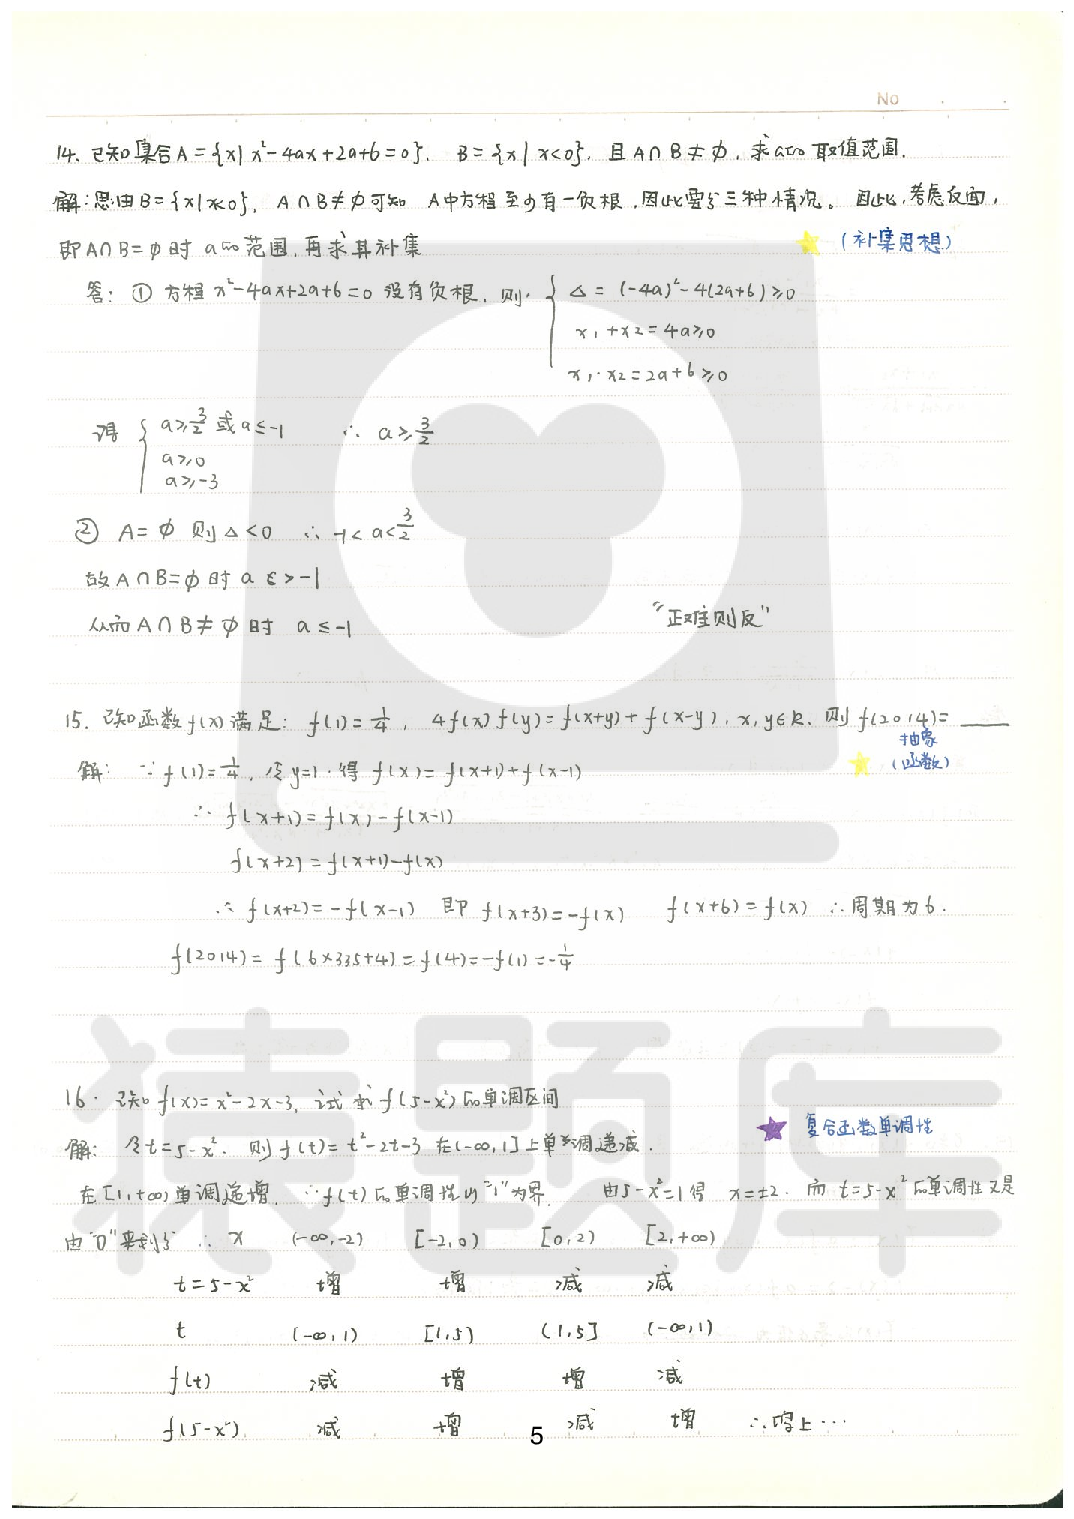 No
14. 已知集合A={x| x²-4ax+2a+6=0}, B={x| x<0}, 且A∩B≠ϕ, 求a的取值范围.
解:思由B={x|x<0}, A∩B≠ϕ可知 A中方程至少有一负根,因此需分三种情况。因此,考虑反面,
即A∩B=ϕ时 a的范围,再求其补集 (补集思想)
答: ① 方程x²-4ax+2a+6=0没有负根, 则 { Δ = (-4a)²-4(2a+6)≥0
x₁+x₂=4a≥0
x₁·x₂=2a+6≥0
得 { a≥3/2 或a≤-1 ∴ a≥3/2
a≥0
a≥-3
② A=ϕ 则Δ<0 ∴ -1<a<3/2
故A∩B=ϕ时 a >-1
从而A∩B≠ϕ时 a≤-1 “正难则反”
15. 已知函数f(x)满足: f(1)=1/4, 4f(x)f(y)=f(x+y)+f(x-y), x,y∈R. 则f(2014)=____
抽象
(函数)
解: ∵f(1)=1/4, 令y=1·得 f(x)=f(x+1)+f(x-1)
∴ f(x+1)=f(x)-f(x-1)
f(x+2)=f(x+1)-f(x)
∴ f(x+2)=-f(x-1) 即 f(x+3)=-f(x) f(x+6)=f(x) ∴周期为6.
f(2014)=f(6×335+4)=f(4)=-f(1)=-1/4
猿题库
16. 已知f(x)=x²-2x-3, 试求f(5-x²)的单调区间
复合函数单调性
解: 令t=5-x². 则f(t)=t²-2t-3 在(-∞,1]上单调递减.
在[1,+∞)单调递增. ∵f(t)的单调性以“1”为界. 由5-x²=1得 x=±2. 而t=5-x²的单调性又是
由“0”来划分 ∴ x (-∞,-2) [-2,0) [0,2) [2,+∞)
t=5-x² 增 增 减 减
t (-∞,1) [1,5) (1,5] (-∞,1)
f(t) 减 增 增 减
f(5-x²) 减 增 减 增 ∴综上…
5